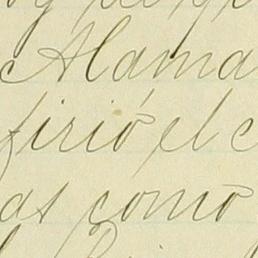 Alama
firió el c
as como